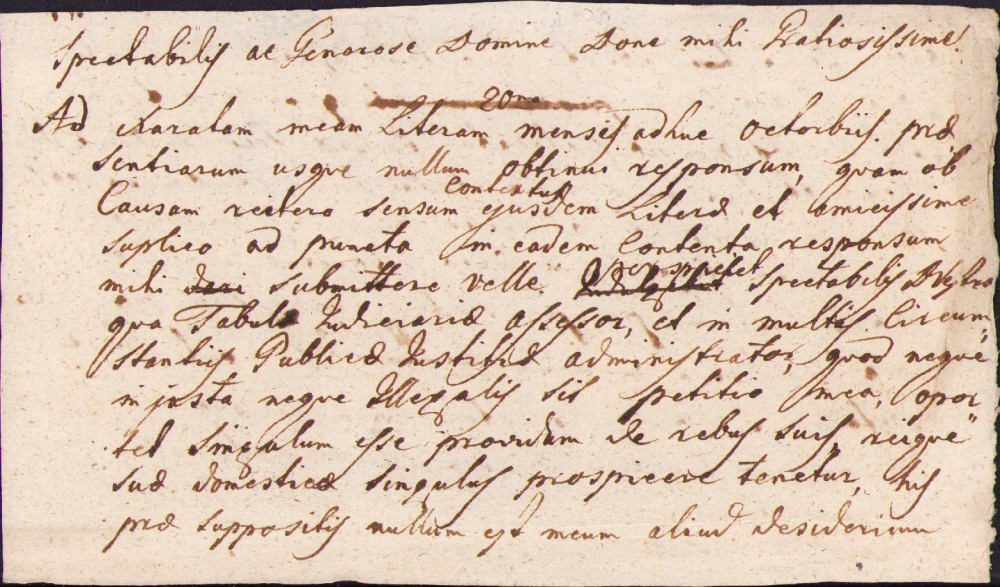 Spectabilis ac Generose Domine Done mihi Gratiosissime!
20ma
Ad exaratam meam Literam mensis adhuc octobris præ
sentiarum usque nullum obtinui responsum, quam ob
contextum
Causam reitero sensum ejusdem Literæ et amicissime
suplico ad puncta in eadem Contenta responsum
perspiciet
mihi dari submittere velle. Spectabilis D Vestra
qua Tabulæ Judiciariæ assessor, et in multis Circum
stantiis Publicæ Justitiæ administrator, quod neque
injusta neque Illegalis sit petitio mea, opor
tet singulum esse providum de rebus suis, reique
suæ domesticæ singulus prospicere tenetur, his
præ suppositis nullum est meum aliud desiderium